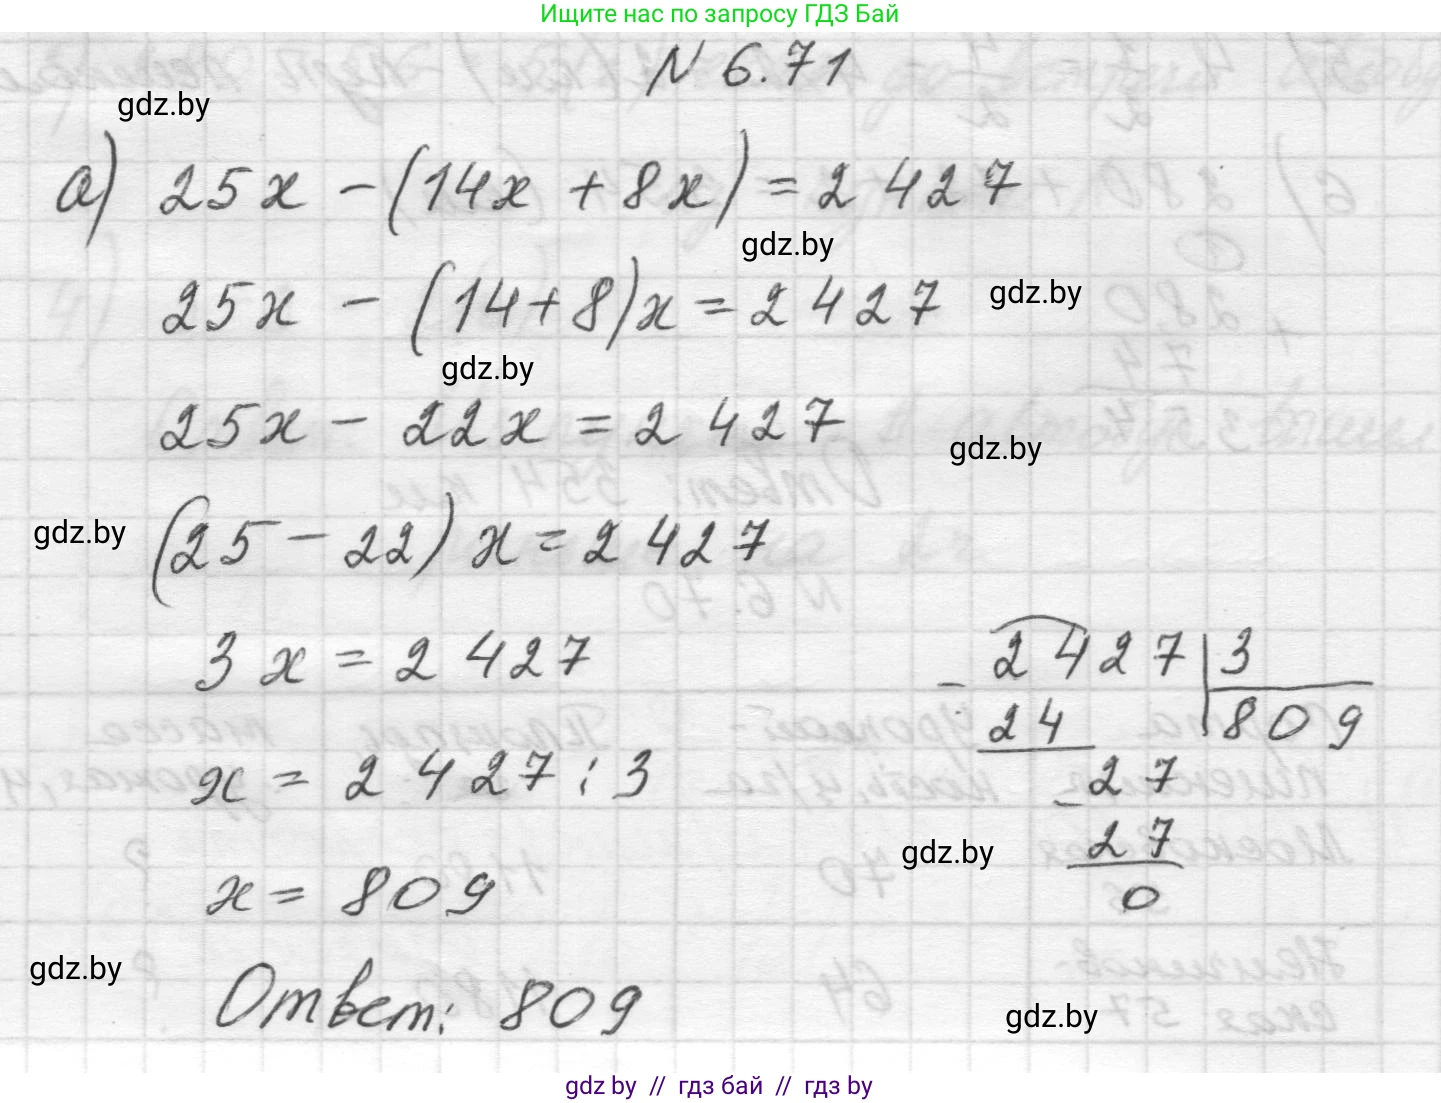 Ищите нас по запросу ГДЗ Бай
N 6.71
gdz.by
а) 25x - (14x + 8x) = 2427
gdz.by
25x - (14+8)x = 2427
gdz.by
gdz.by
25x - 22x = 2427
gdz.by
gdz.by
(25 - 22)x = 2427
3x = 2427
- 2427 | 3
24
809
x = 2427 : 3
- 27
27
gdz.by
0
x = 809
gdz.by
Ответ: 809
gdz.by
gdz by // гдз бай // гдз by